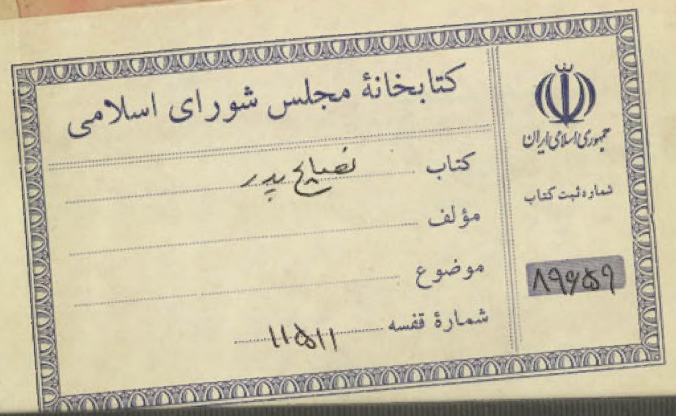 کتابخانهٔ مجلس شورای اسلامی
کتاب نصایح پدر
مؤلف
موضوع
شمارهٔ قفسه ۱۱۵۱۱
جمهوری اسلامی ایران
شماره ثبت کتاب
۸۹۶۵۹